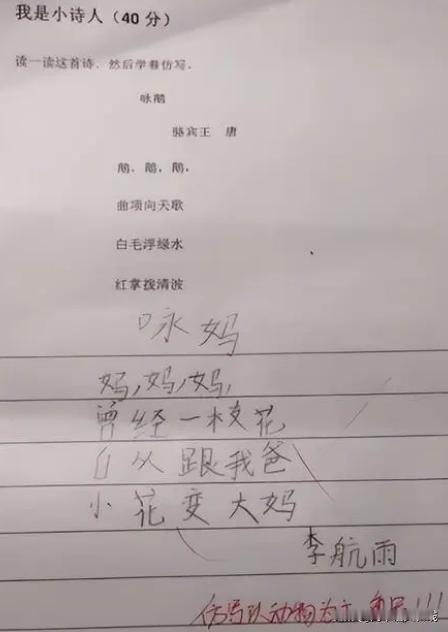 我是小诗人（40 分）
读一读这首诗，然后学着仿写。
咏鹅
骆宾王 唐
鹅，鹅，鹅，
曲项向天歌
白毛浮绿水
红掌拨清波
咏妈
妈，妈，妈，
曾经一枝花
自从跟我爸
小花变大妈
李航雨
仿写以动物为主